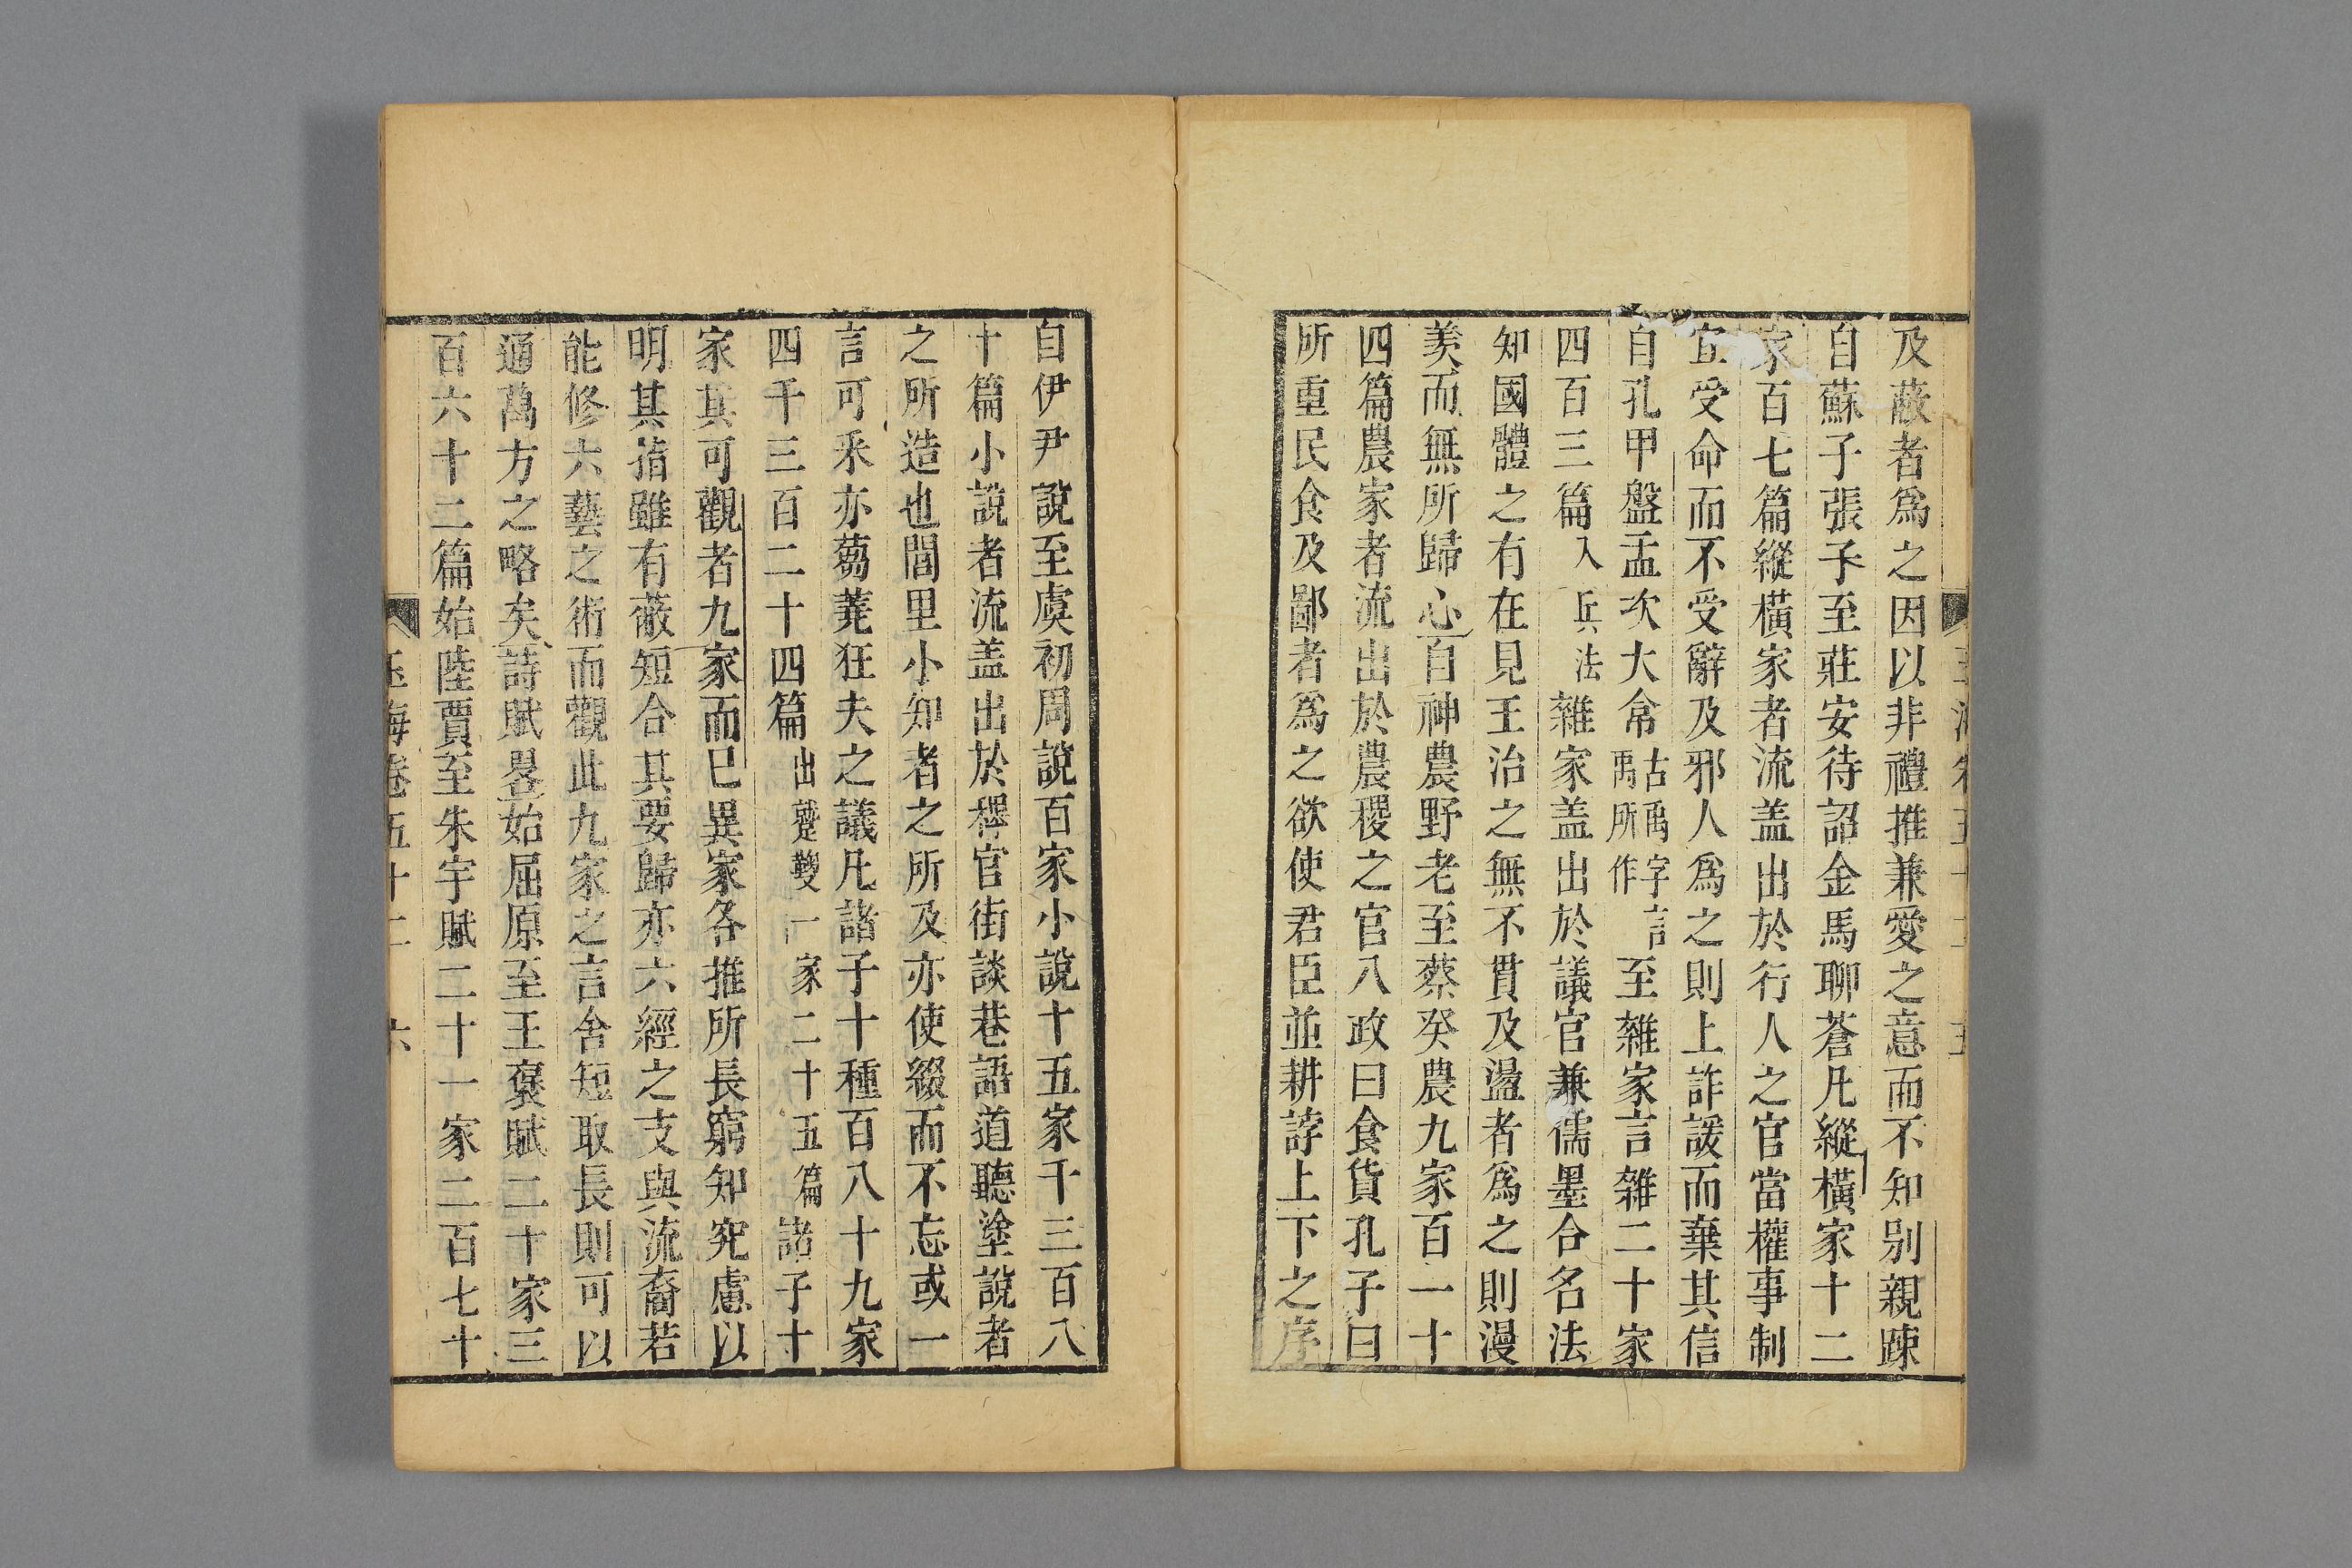 及蔽者爲之因以非禮推兼愛之意而不知别親踈
自蘇子張子至莊安待詔金馬聊蒼凡縱横家十二
家百七篇縱横家者流盖出於行人之官當權事制
宜受命而不受辭及邪人爲之則上詐諼而棄其信
自孔甲盤盂次大㑺古禹字言禹所作至雜家言雜二十家
四百三篇入兵法雜家盖出於議官兼儒墨合名法
知國體之有在見王治之無不貫及盪者爲之則漫
羨而無所歸心自神農野老至蔡癸農九家百一十
四篇農家者流出於農稷之官八政曰食貨孔子曰
所重民食及鄙者爲之欲使君臣並耕誖上下之序
自伊尹說至虞初周說百家小說十五家千三百八
十篇小說者流盖出於稗官街談巷語道聽塗說者
之所造也閭里小知者之所及亦使綴而不忘或一
言可釆亦蒭蕘狂夫之議凡諸子十種百八十九家
四千三百二十四篇出蹵鞠一家二十五篇諸子十
家其可觀者九家而已異家各推所長窮知究慮以
明其指雖有蔽短合其要歸亦六經之支與流裔若
能修六藝之術而觀此九家之言舍短取長則可以
通萬方之略矣詩賦畧始屈原至王襃賦二十家三
百六十二篇始陸賈至朱宇賦二十一家二百七十
玉海卷五十二 六